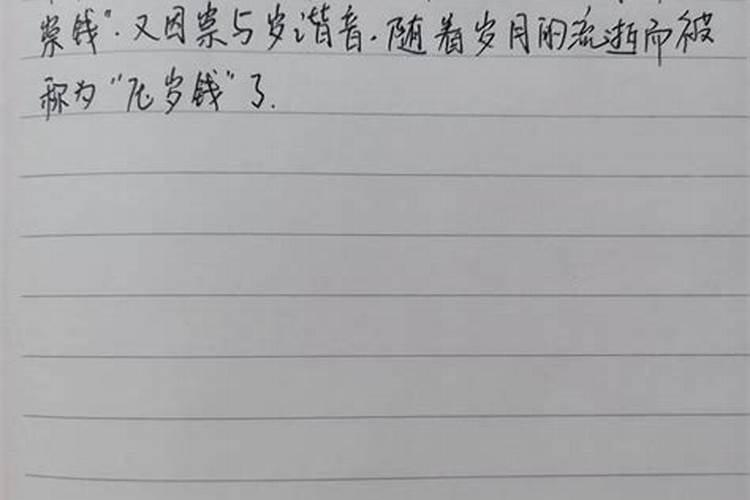 祟钱”. 又因祟与岁谐音. 随着岁月的流逝而被
称为“压岁钱”了.